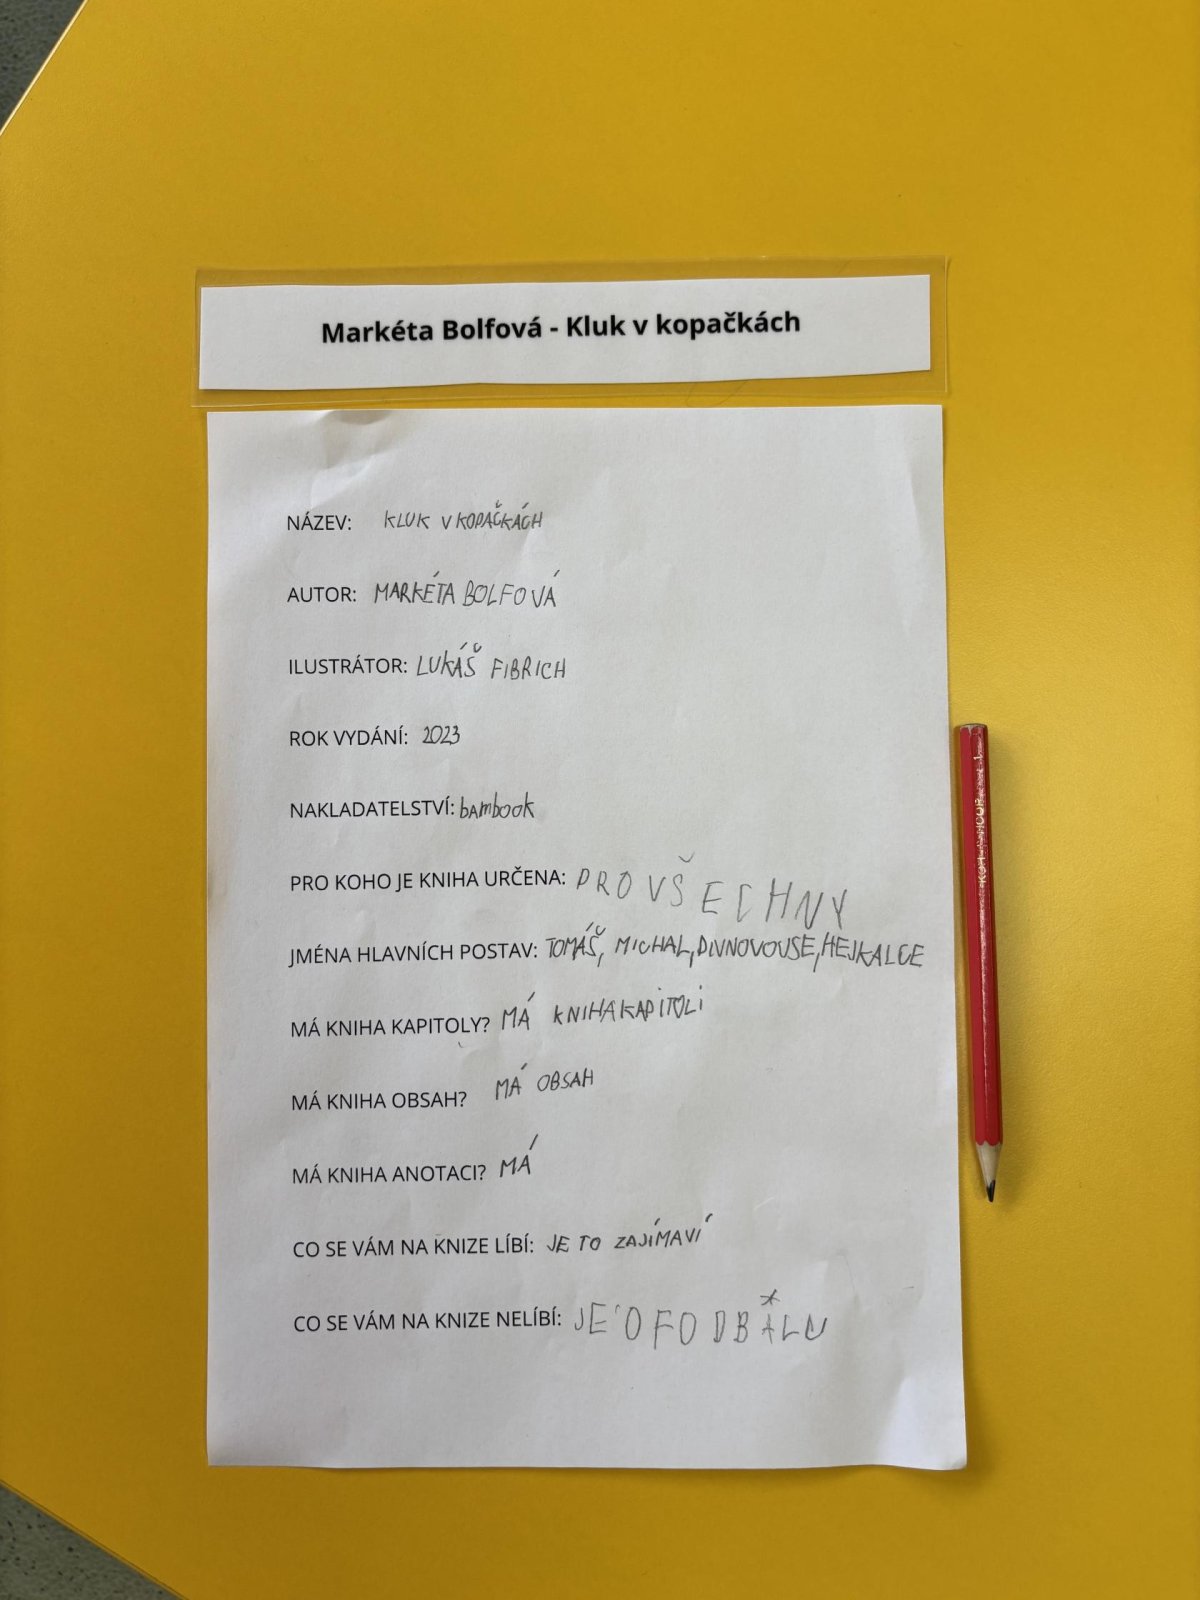 Markéta Bolfová - Kluk v kopačkách
NÁZEV: KLUK V KOPAČKÁCH
AUTOR: MARKÉTA BOLFOVÁ
ILUSTRÁTOR: LUKÁŠ FIBRICH
ROK VYDÁNÍ: 2023
NAKLADATELSTVÍ: bambook
PRO KOHO JE KNIHA URČENA: PRO VŠECHNY
JMÉNA HLAVNÍCH POSTAV: TOMÁŠ, MICHAL, DIVNOVOUSE, HEJKALCE
MÁ KNIHA KAPITOLY? MÁ KNIHA KAPITOLI
MÁ KNIHA OBSAH? MÁ OBSAH
MÁ KNIHA ANOTACI? MÁ
CO SE VÁM NA KNIZE LÍBÍ: JE TO ZAJÍMAVÍ
CO SE VÁM NA KNIZE NELÍBÍ: JE O FODBALU